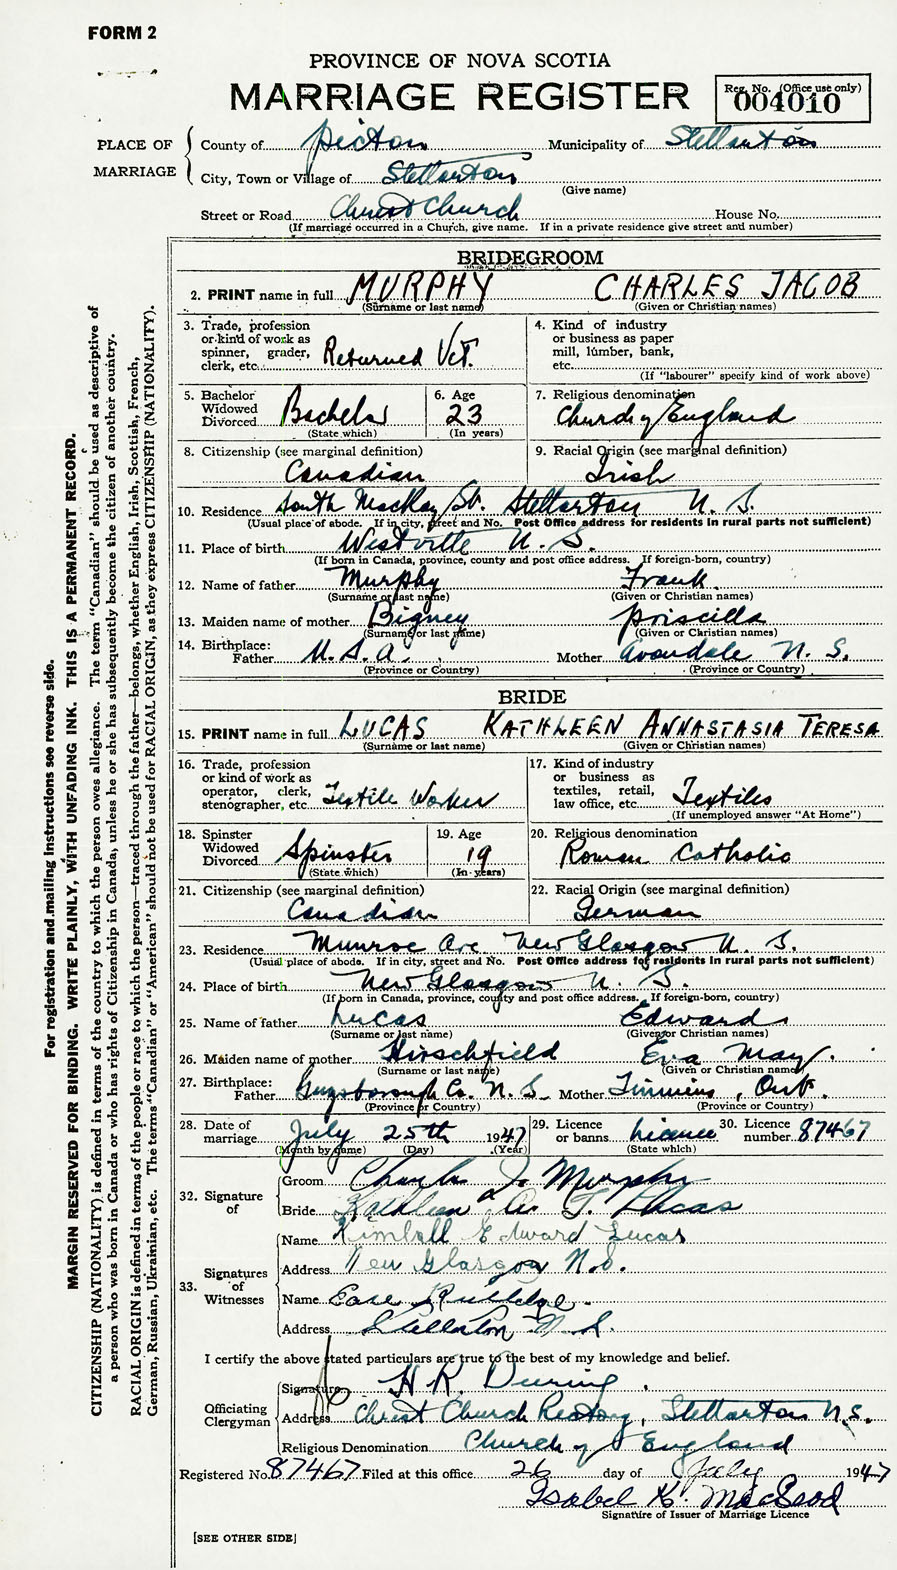 FORM 2
PROVINCE OF NOVA SCOTIA
MARRIAGE REGISTER
Reg. No. (Office use only)
004010
PLACE OF MARRIAGE
County of Pictou Municipality of Stellarton
City, Town or Village of Stellarton
(Give name)
Street or Road Christ Church House No.
(If marriage occurred in a Church, give name. If in a private residence give street and number)
BRIDEGROOM
2. PRINT name in full MURPHY CHARLES JACOB
(Surname or last name) (Given or Christian names)
3. Trade, profession or kind of work as spinner, grader, clerk, etc. Returned Vet.
4. Kind of industry or business as paper mill, lumber, bank, etc.
(If "labourer" specify kind of work above)
5. Bachelor Widowed Divorced Bachelor
(State which)
6. Age 23
(In years)
7. Religious denomination Church of England
8. Citizenship (see marginal definition) Canadian
9. Racial Origin (see marginal definition) Irish
10. Residence South MacKay St. Stellarton N. S.
(Usual place of abode. If in city, street and No. Post Office address for residents in rural parts not sufficient)
11. Place of birth Westville N. S.
(If born in Canada, province, county and post office address. If foreign-born, country)
12. Name of father Murphy Frank
(Surname or last name) (Given or Christian names)
13. Maiden name of mother Bigney Priscilla
(Surname or last name) (Given or Christian names)
14. Birthplace: Father U. S. A. Mother Avondale N. S.
(Province or Country) (Province or Country)
BRIDE
15. PRINT name in full LUCAS KATHLEEN ANNASTASIA TERESA
(Surname or last name) (Given or Christian names)
16. Trade, profession or kind of work as operator, clerk, stenographer, etc. Textile Worker
17. Kind of industry or business as textiles, retail, law office, etc. Textiles
(If unemployed answer "At Home")
18. Spinster Widowed Divorced Spinster
(State which)
19. Age 19
(In years)
20. Religious denomination Roman Catholic
21. Citizenship (see marginal definition) Canadian
22. Racial Origin (see marginal definition) German
23. Residence Munroe Ave New Glasgow N. S.
(Usual place of abode. If in city, street and No. Post Office address for residents in rural parts not sufficient)
24. Place of birth New Glasgow N. S.
(If born in Canada, province, county and post office address. If foreign-born, country)
25. Name of father Lucas Edward
(Surname or last name) (Given or Christian names)
26. Maiden name of mother Hirschfield Eva May
(Surname or last name) (Given or Christian names)
27. Birthplace: Father Guysborough Co. N. S. Mother Timmins, Ont.
(Province or Country) (Province or Country)
28. Date of marriage July 25th 1947
(Month by name) (Day) (Year)
29. Licence or banns Licence
(State which)
30. Licence number 87467
32. Signature of
Groom Charles J. Murphy
Bride Kathleen A. T. Lucas
33. Signatures of Witnesses
Name Kimball Edward Lucas
Address New Glasgow N.S.
Name Rutledge
Address Stellarton N. S.
I certify the above stated particulars are true to the best of my knowledge and belief.
Officiating Clergyman
Signature H R.
Address Christ Church Rectory, Stellarton N.S.
Religious Denomination Church of England
Registered No. 87467 Filed at this office 26 day of July 1947
Isobel K. MacLeod
Signature of Issuer of Marriage Licence
[SEE OTHER SIDE]
For registration and mailing instructions see reverse side.
MARGIN RESERVED FOR BINDING. WRITE PLAINLY, WITH UNFADING INK. THIS IS A PERMANENT RECORD.
CITIZENSHIP (NATIONALITY) is defined in terms of the country to which the person owes allegiance. The term "Canadian" should be used as descriptive of
a person who was born in Canada or who has rights of Citizenship in Canada, unless he or she has subsequently become the citizen of another country.
RACIAL ORIGIN is defined in terms of the people or race to which the person—traced through the father—belongs, whether English, Irish, Scottish, French,
German, Russian, Ukrainian, etc. The terms "Canadian" or "American" should not be used for RACIAL ORIGIN, as they express CITIZENSHIP (NATIONALITY).